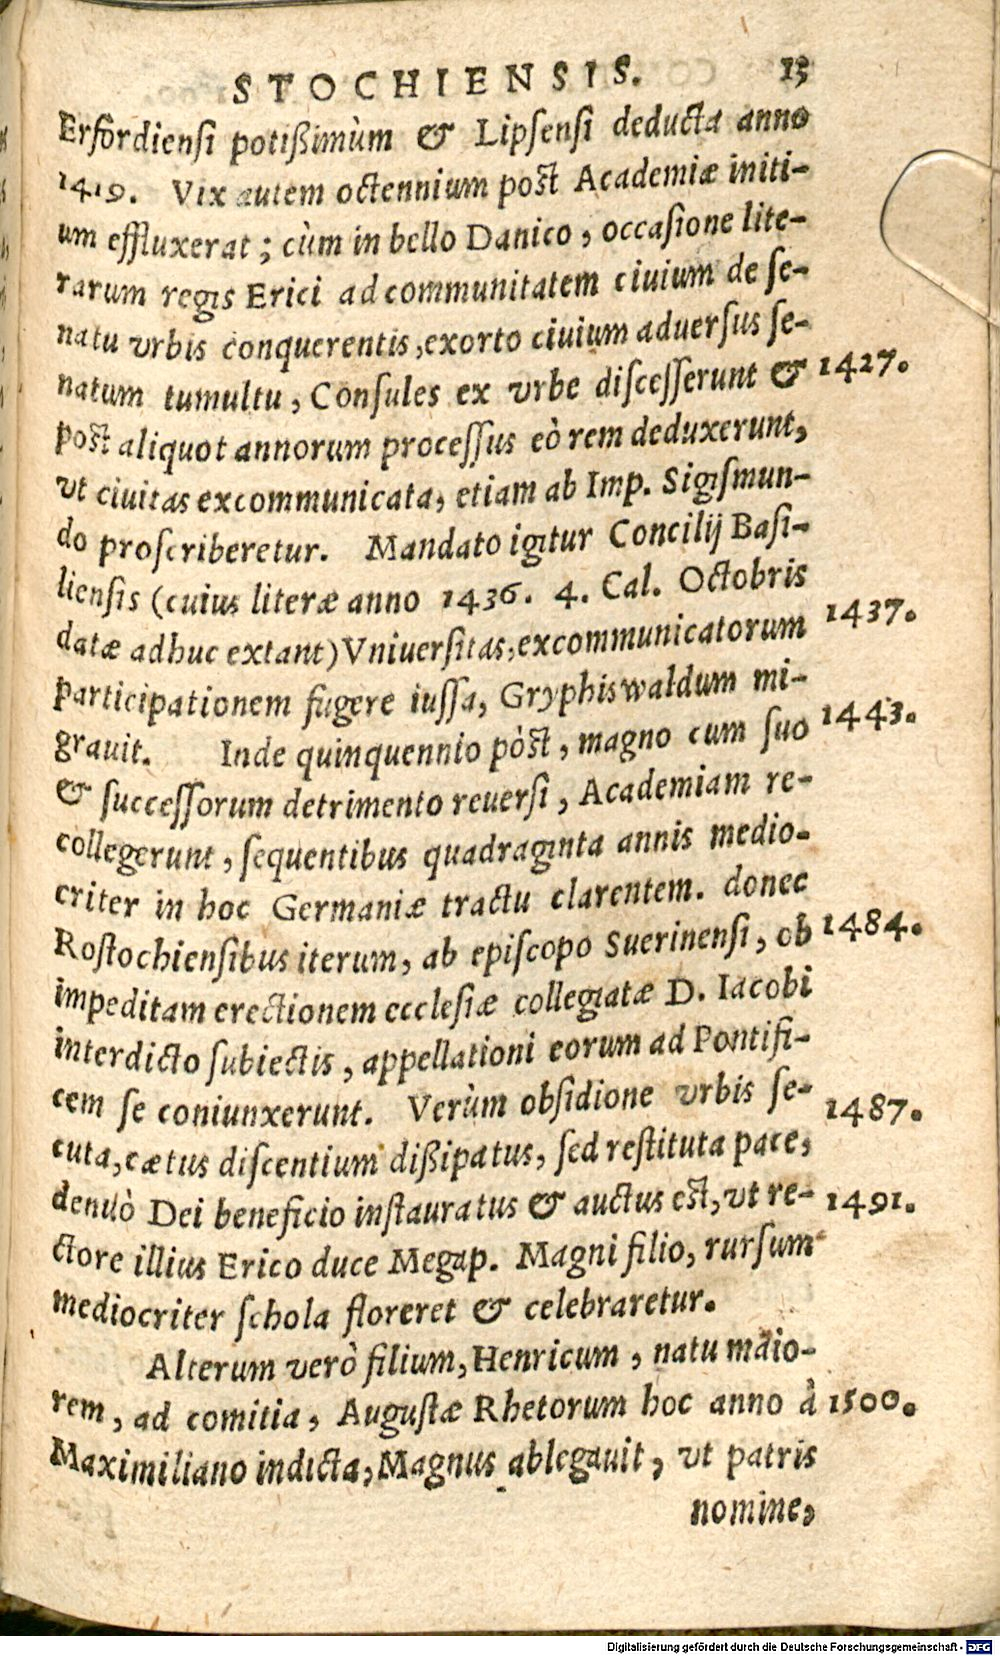 STOCHIENSIS. 13
Erfordiensi potißimùm & Lipsensi deducta anno
1419. Vix autem octennium post Academiæ initi-
um effluxerat; cùm in bello Danico, occasione lite-
rarum regis Erici ad communitatem ciuium de se-
natu vrbis conquerentis, exorto ciuium aduersus se-
natum tumultu, Consules ex vrbe discesserunt & 1427.
post aliquot annorum processus eò rem deduxerunt,
vt ciuitas excommunicata, etiam ab Imp. Sigismun-
do proscriberetur. Mandato igitur Concilij Basi-
liensis (cuius literæ anno 1436. 4. Cal. Octobris
datæ adhuc extant) Vniuersitas, excommunicatorum 1437.
participationem fugere iussa, Gryphiswaldum mi-
grauit. Inde quinquennio pòst, magno cum suo 1443.
& successorum detrimento reuersi, Academiam re-
collegerunt, sequentibus quadraginta annis medio-
criter in hoc Germaniæ tractu clarentem. donec
Rostochiensibus iterum, ab episcopo Suerinensi, ob 1484.
impeditam erectionem ecclesiæ collegiatæ D. Iacobi
interdicto subiectis, appellationi eorum ad Pontifi-
cem se coniunxerunt. Verùm obsidione vrbis se- 1487.
cuta, cætus discentium dißipatus, sed restituta pace,
denuò Dei beneficio instauratus & auctus est, vt re- 1491.
ctore illius Erico duce Megap. Magni filio, rursum
mediocriter schola floreret & celebraretur.
Alterum verò filium, Henricum, natu maio-
rem, ad comitia, Augustæ Rhetorum hoc anno à 1500.
Maximiliano indicta, Magnus ablegauit, vt patris
nomine,
Digitalisierung gefördert durch die Deutsche Forschungsgemeinschaft - DFG